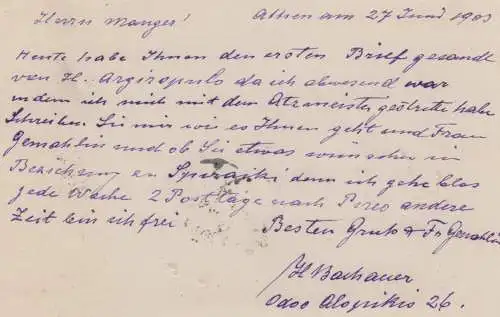 Herrn Manger! Athen am 27 Juni 1903
Heute habe Ihnen den ersten Brief gesandt
von H. Argiropulo da ich abwesend war
indem ich mich mit dem
Schreiben Sie mir wie es Ihnen geht und Frau
Gemahlin und ob Sie etwas wünschen in
Beziehung denn ich gehe blos
jede Woche 2 Posttage nach Pireo andere
Zeit bin ich frei Besten Gruß & Fr Gemahlin
H Bachauer
Odos 26.